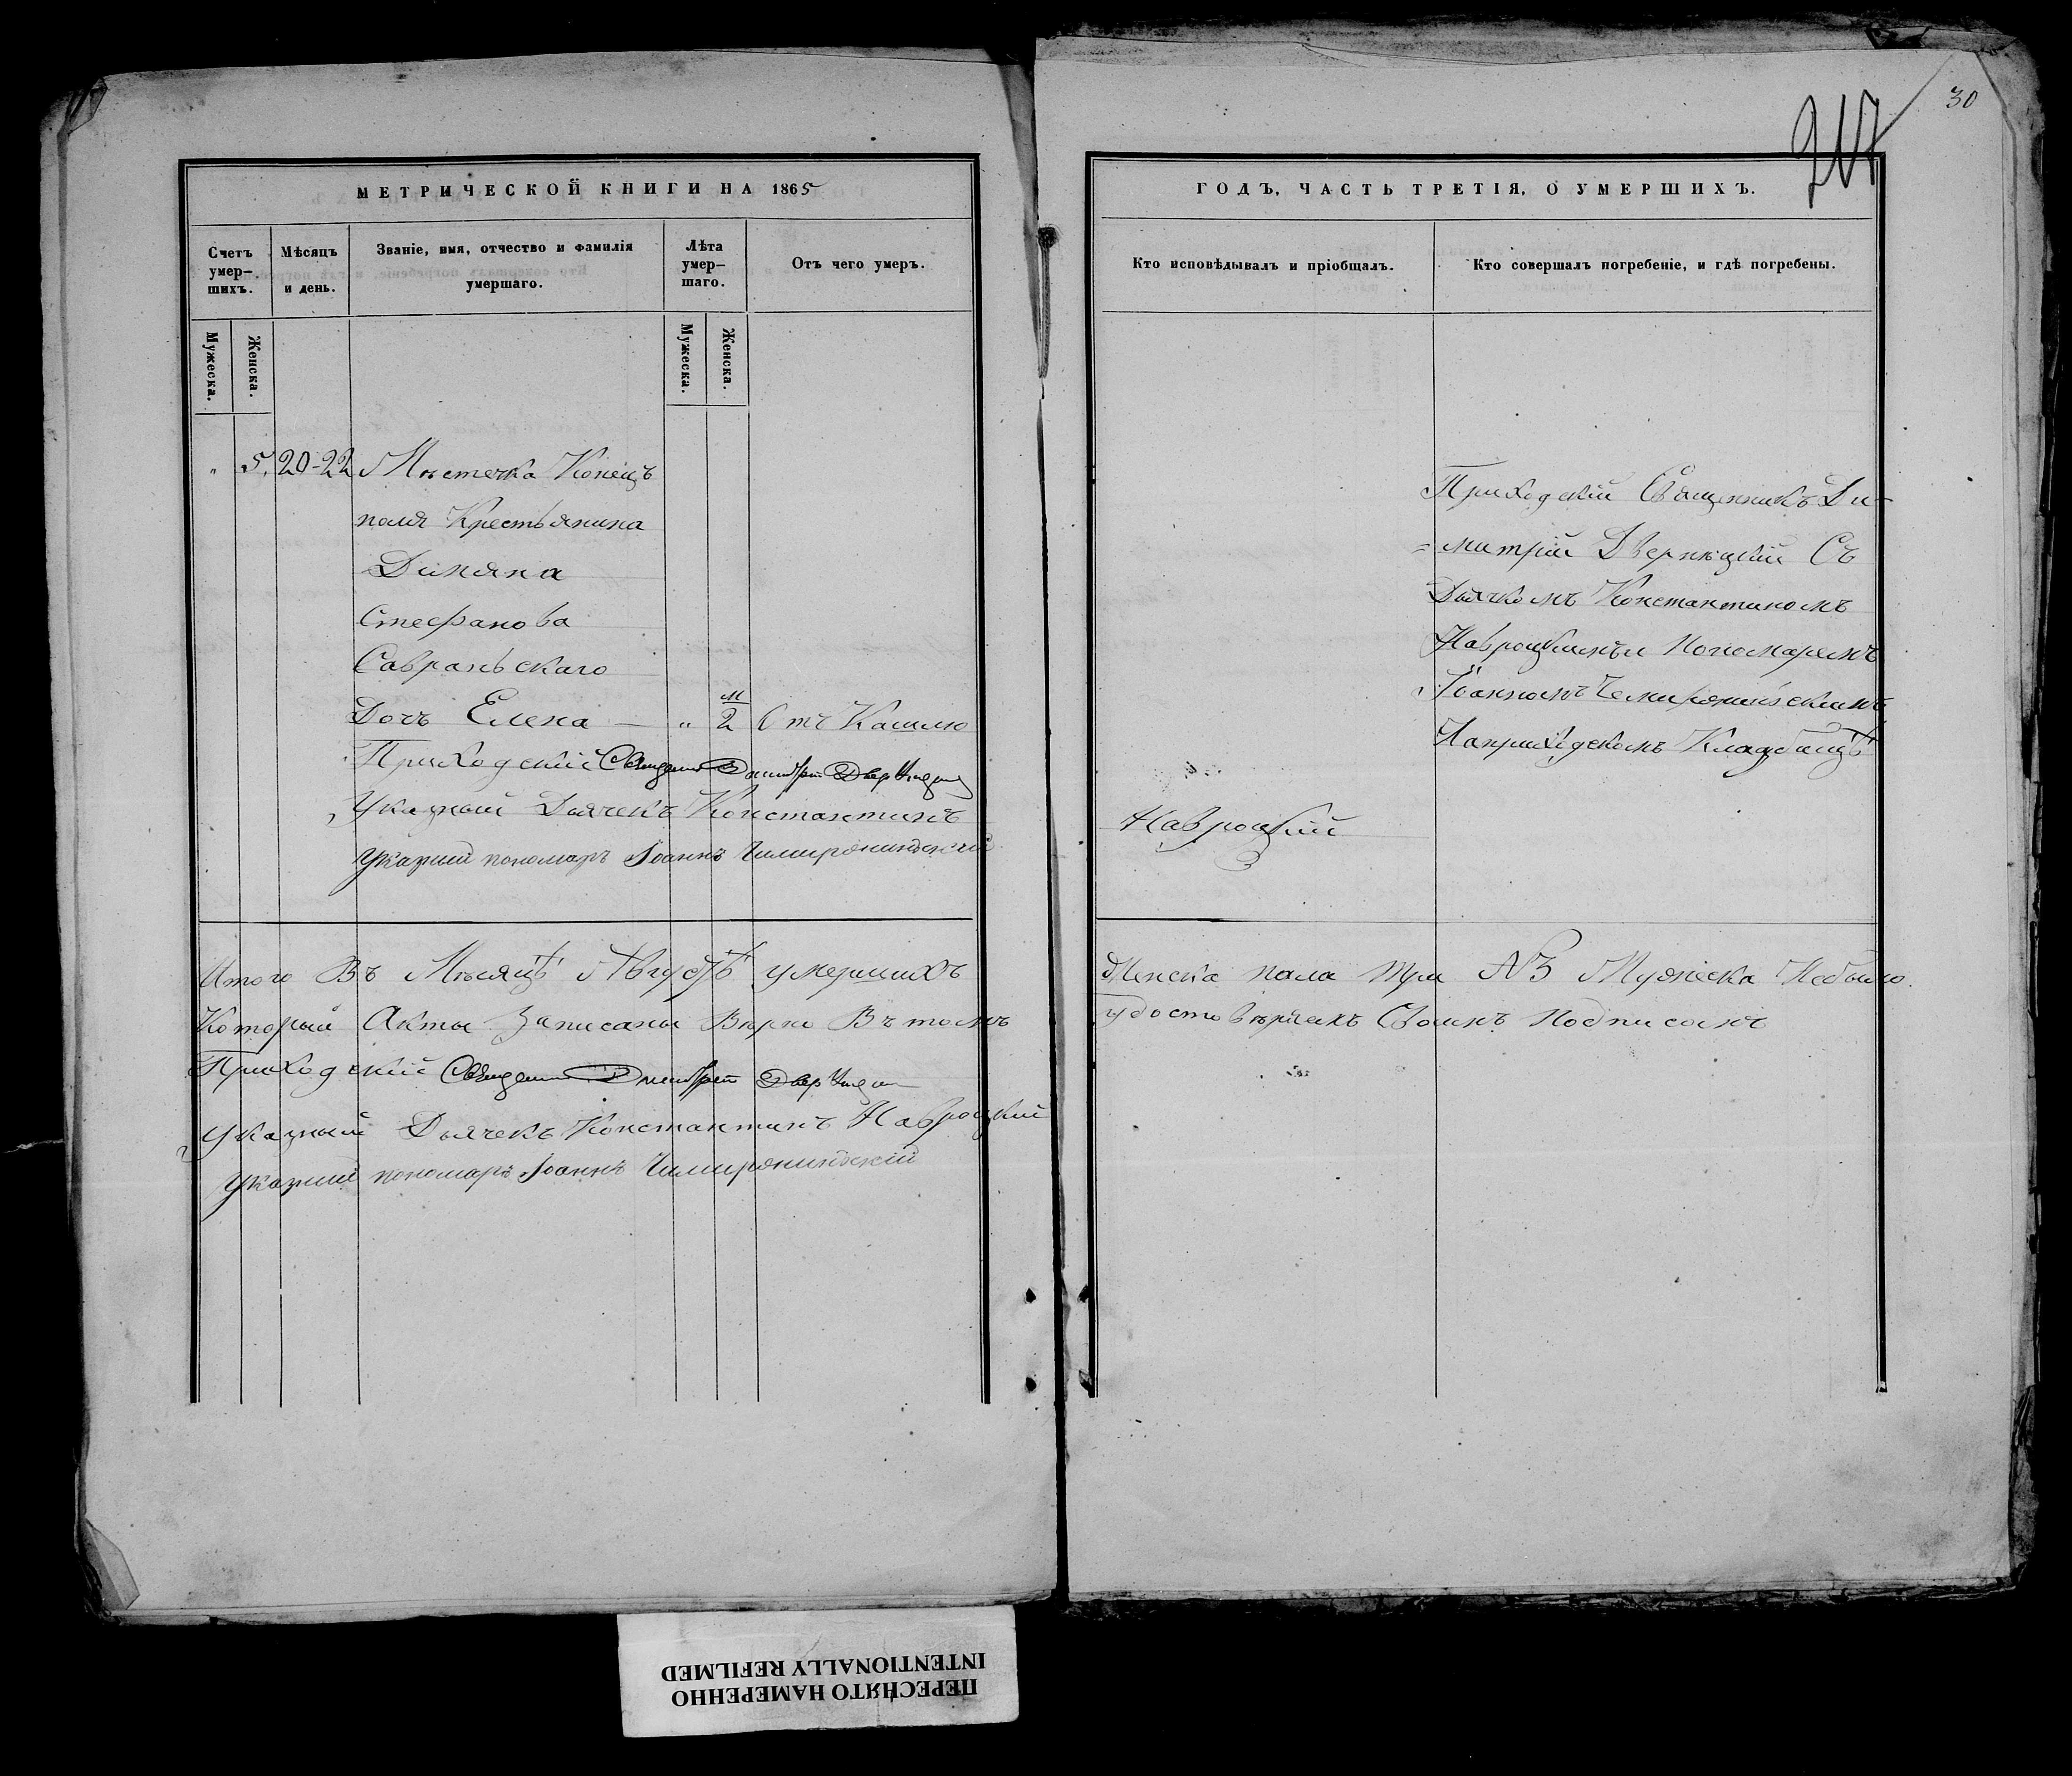 30
217
МЕТРИЧЕСКОЙ КНИГИ НА 1865
ГОДЪ, ЧАСТЬ ТРЕТІЯ, О УМЕРШИХЪ.
Счетъ умер-шихъ.
Мѣсяцъ и день.
Званіе, имя, отчество и фамилія умершаго.
Лѣта умер-шаго.
Отъ чего умеръ.
Кто исповѣдывалъ и пріобщалъ.
Кто совершалъ погребеніе, и гдѣ погребены.
Мужеска.
Женска.
Мужеска.
Женска.
" 5. 20-22 Мѣстечка Конецъ
поля Крестьянина
Диміяна
Стефанова
Савраньскаго
Дочъ Елена — " м/2 Отъ Кашлю
Приходскій Священникъ Димитрій
Указный Дьячекъ Константинъ
Навроцкій
Указный пономарь Іоаннъ
Приходскій Священникъ Ди-
=митрій Дверницкій Съ
Дьячкомъ Константиномъ
Навроцкимъ и Пономаремъ
Іоанномъ
Наприходскомъ Кладбищѣ
Итого Въ Мѣсяцѣ Августѣ умершихъ
Женска пола три №3 Мужеска Небыло.
Которыи Акты Записаны Вѣрно Въ томъ
удостовѣряемъ Своимъ Подписомъ
Приходскій Священникъ Димитрій
Указный Дьячекъ Константинъ Навроцкій
Указный пономарь Іоаннъ
ПЕРЕСНЯТО НАМЕРЕННО
INTENTIONALLY REFILMED